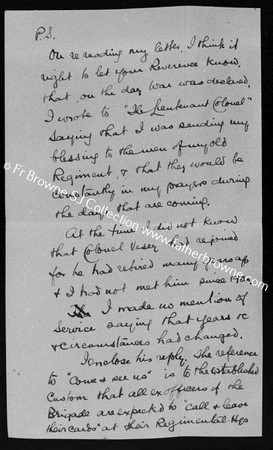 P.S.
On re reading my letter, I think it
right to let your Reverence know,
that, on the day war was declared,
I wrote to "The Lieutenant Colonel"
saying that I was sending my
blessing to the men of my old
Regiment, & that they would be
constantly in my prayers during
the days that are coming.
At the time I did not know
that Colonel Vesey had retired
for he had retired many years ago
& I had not met him since 1920.
I made no mention of
Service saying that years &c
& circumstances had changed.
I enclose his reply. The reference
to "Come & see us" is to the established
Custom that all ex officers of the
Brigade are expected to "call & leave
their cards" at their Regimental Hqs
© Fr Browne S.J. Collection
www.fatherbrowne.com